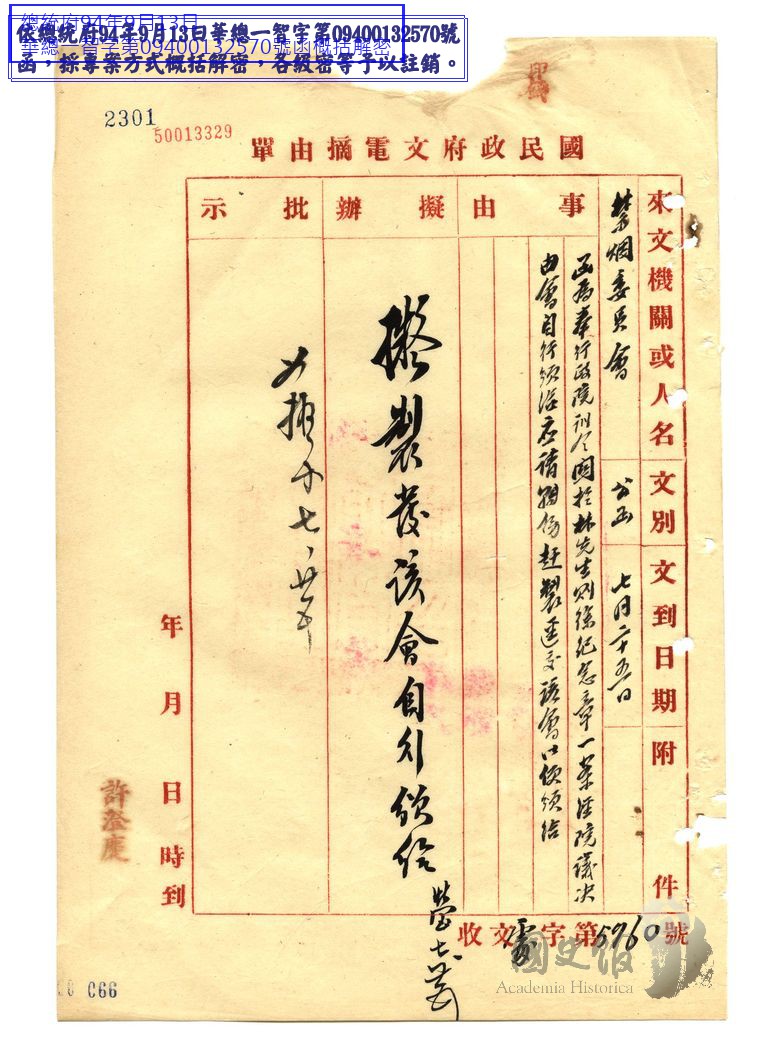 總統府94年9月13日
華總一智字第09400132570號函概括解密
依總統府94年9月13日華總一智字第09400132570號
函，採專案方式概括解密，各級密等予以註銷。
2301
50013329
國民政府文電摘由單
來文機關或人名
禁烟委員會
文別
公函
文到日期
七月二十五日
附件
事由
函為奉行政院訓令關於林先生則徐紀念章一案經院議决
由會自行頒給應請赶製送交該會以便頒給
擬辦
擬製發該會自行頒給
批示
年月日時到
許澄慶
收文處字第5960號
國史館
Academia Historica
C66